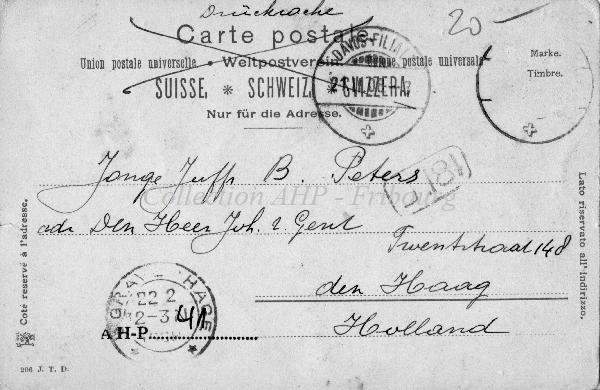 Drucksache
20-
Carte postale.
Union postale universelle. • Weltpostverein. postale universale
SUISSE. * SCHWEIZ. * SVIZZERA.
Nur für die Adresse.
DAVOS-FILIALE
Marke.
Timbre.
Jonge Juffr B. Peters
Collection AHP - Fribourg
adr Den Heer Joh. v. Gent
Twentstraat 148
den Haag
Holland
Côté réservé à l'adresse.
Lato riservato all'indirizzo.
GRAVENHAGE
22 2
2-3
AHP 41
206 J. T. D.